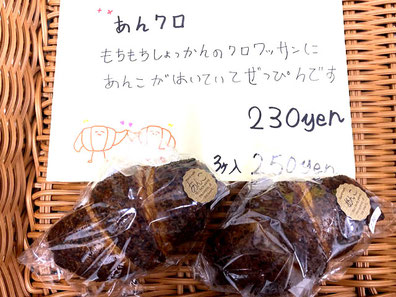 あんクロ
もちもちしょっかんのクロワッサンに
あんこがはいていてぜっぴんです
230yen
3ヶ入 250yen